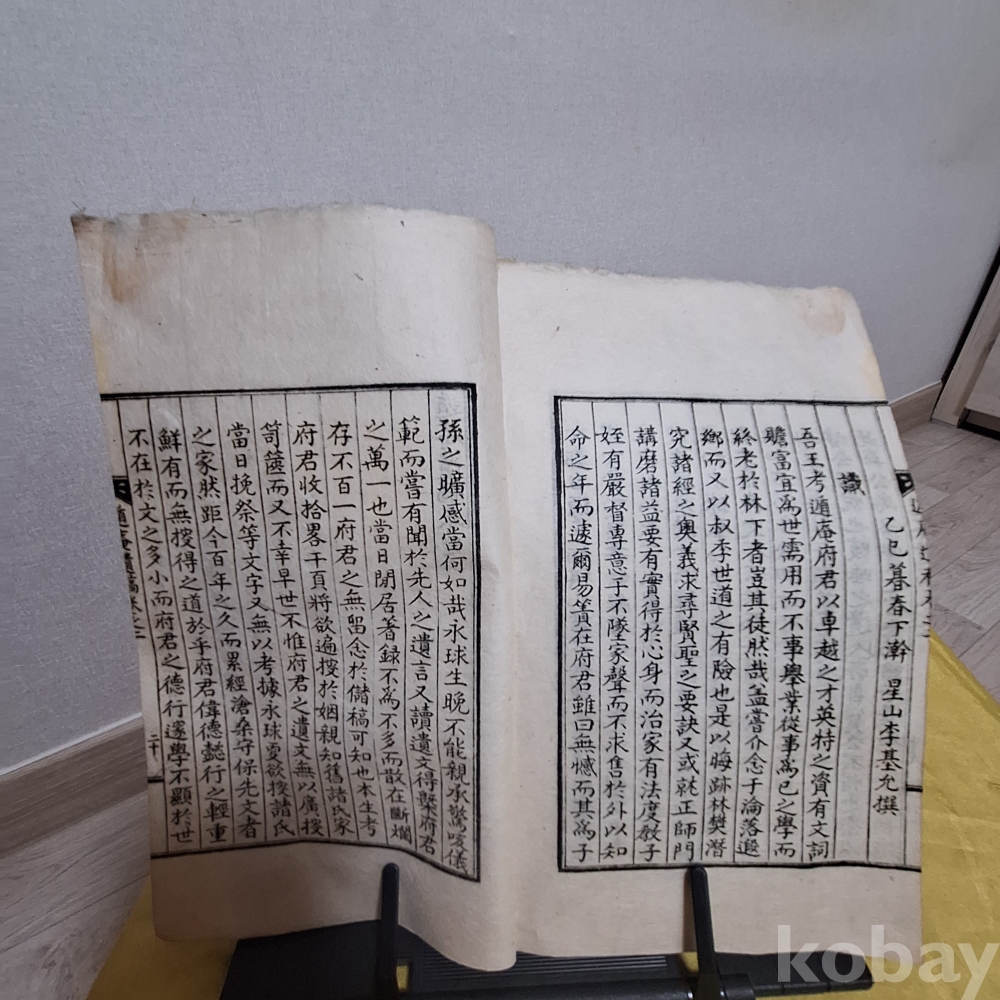 乙巳暮春下澣 星山李基允撰
識
吾王考遁庵府君以卓越之才英特之資有文詞
贍富宜爲世需用而不事擧業從事爲己之學而
終老於林下者豈其徒然哉盖嘗介念于淪落遐
鄕而又以叔季世道之有險也是以晦跡林樊潛
究諸經之奧義求尋賢聖之要訣又或就正師門
講磨諸益要有實得於心身而治家有法度敎子
姪有嚴督專意于不墜家聲而不求售於外以知
命之年而遽爾易簀在府君雖曰無憾而其爲子
孫之曠感當何如哉永球生晩不能親承謦咳儀
範而嘗有聞於先人之遺言又讀遺文得槩府君
之萬一也當日閒居著錄不爲不多而散在斷爛
存不百一府君之無留念於儲稿可知也本生考
府君收拾畧干頁將欲遍搜於姻親知舊諸氏家
笥篋而又不幸早世不惟府君之遺文無以廣搜
當日挽祭等文字又無以考據永球更欲搜諸氏
之家然距今百年之久而累經滄桑守保先文者
鮮有而無搜得之道於乎府君偉德懿行之輕重
不在於文之多小而府君之德行邃學不顯於世
遁庵遺稿卷之二 二十
kobay